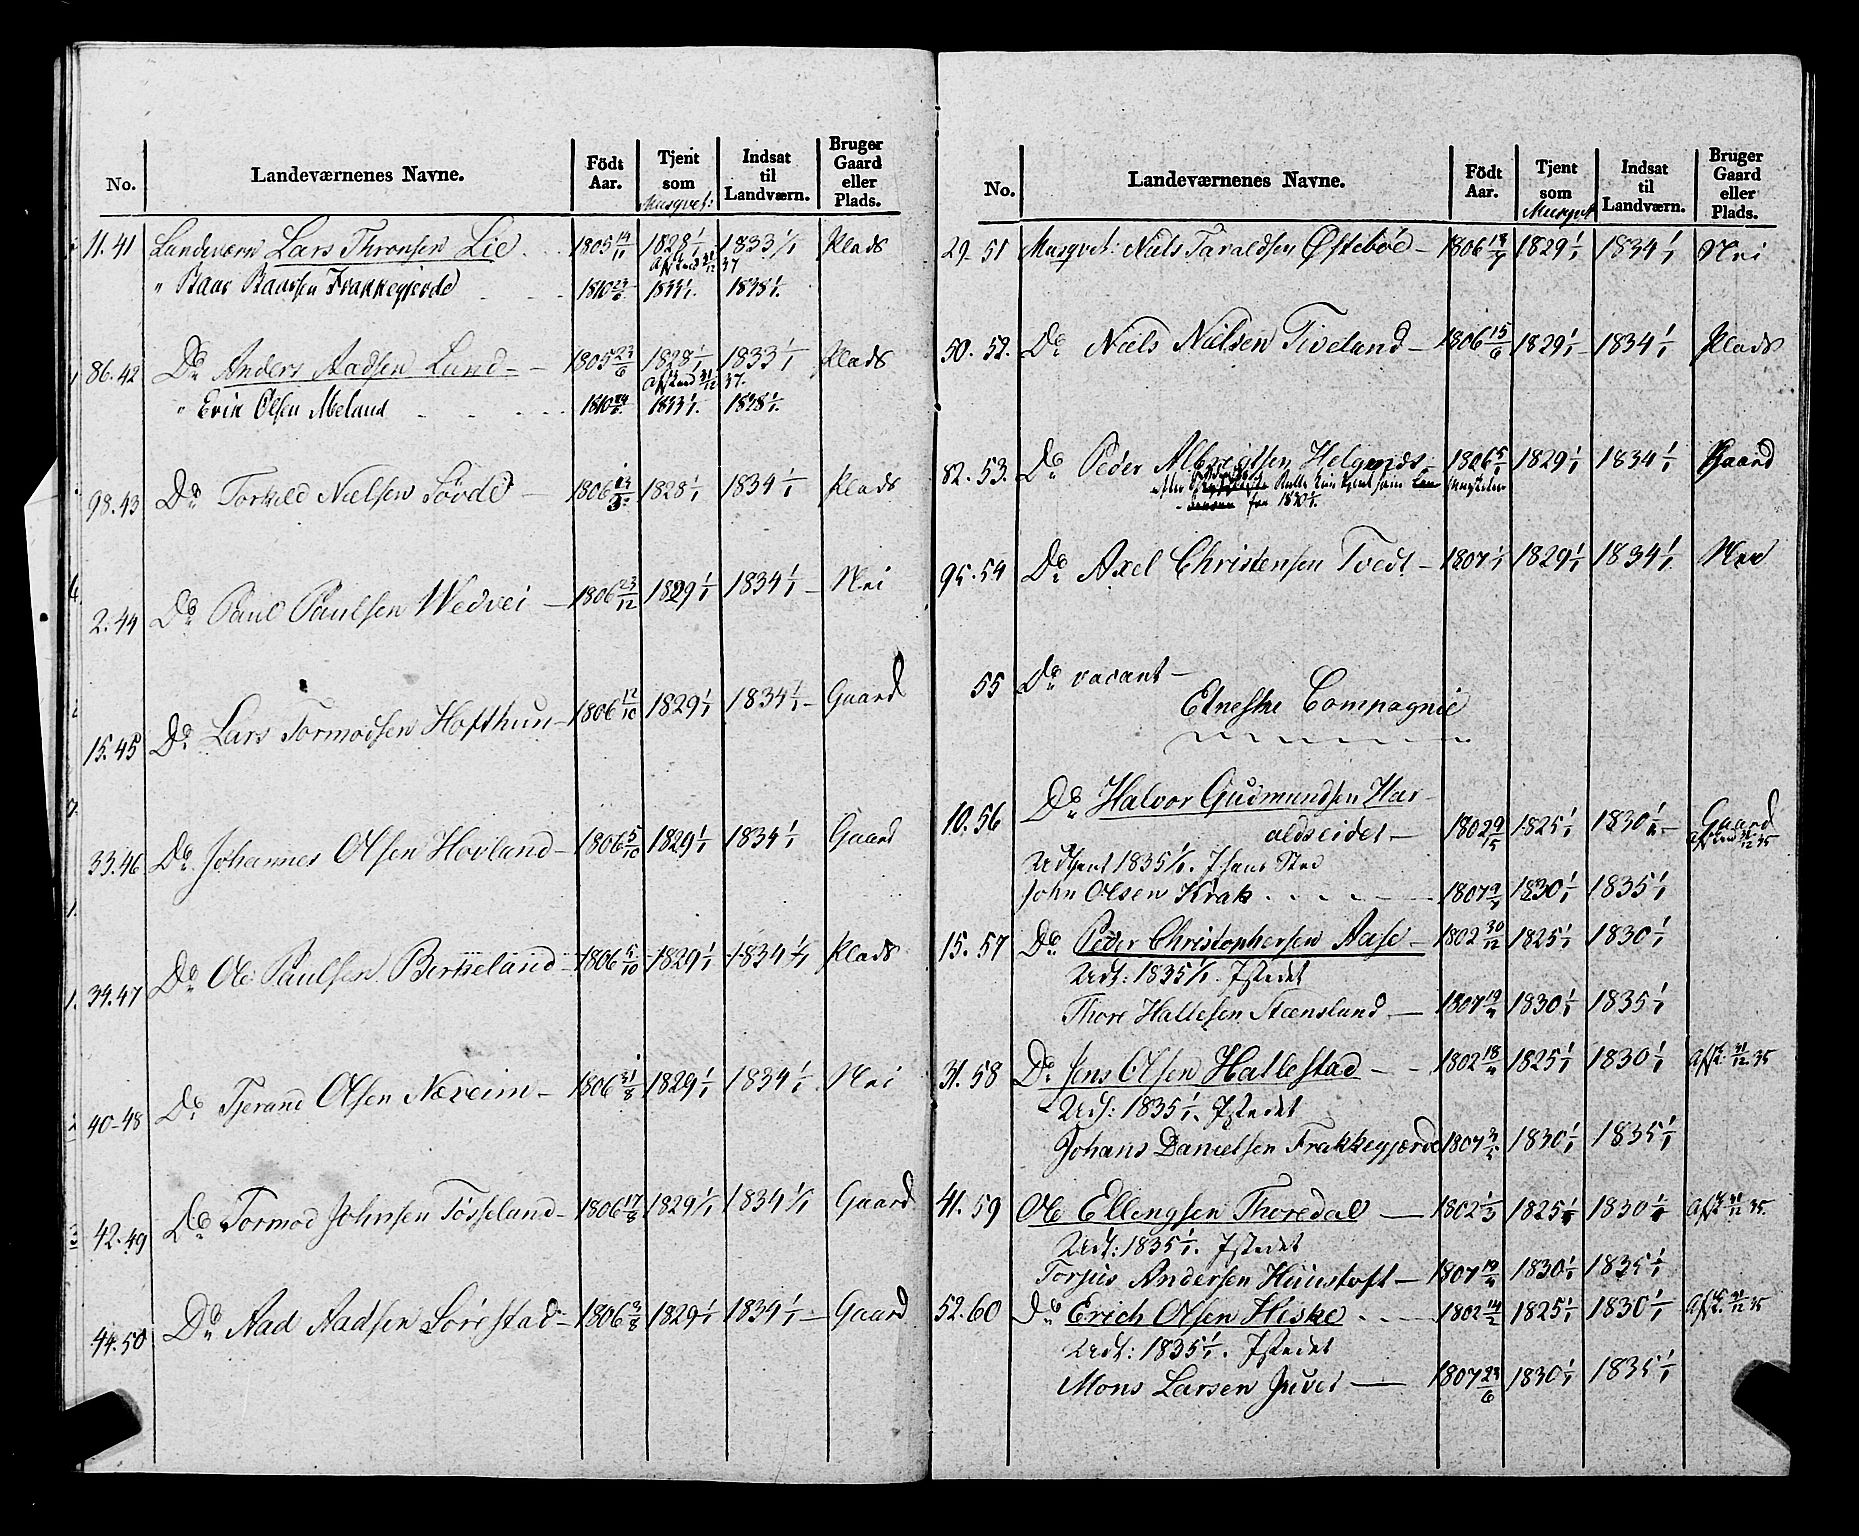 No. Landeværnenes Navne. Födt Aar. Tjent som Musqvet: Indsat til Landværn. Bruger Gaard eller Plads.
11. 41 Landeværn Lars Thronsen Lie 1805 14/11 1828 1/1 1833 1/1 Plads
Afskeed 31/12 37
" Baar Baarsen Frakkegjerde 1810 1833 1/1 1838 1/1
86. 42 Do Anders Aadsen Lund 1805 23/6 1828 1/1 1833 1/1 Plads
Afskeed 31/12 37.
" Erik Olsen Meland 1810 1833 1/1 1838 1/1
98. 43 Do Torkild Nielsen Sövde 1806 1828 1/1 1834 1/1 Plads
2. 44 Do Paul Paulsen Wedvei 1806 23/12 1829 1/1 1834 1/1 Nei
15. 45 Do Lars Tormodsen Hofthun 1806 12/10 1829 1/1 1834 1/1 Gaard
33. 46 Do Johannes Olsen Hovland 1806 5/10 1829 1/1 1834 1/1 Gaard
34. 47 Do Ole Paulsen Birkeland 1806 5/10 1829 1/1 1834 1/1 Plads
40-48 Do Tjerand Olsen Næreim 1806 31/8 1829 1/1 1834 1/1 Nei
42. 49 Do Tormod Johnsen Tösseland 1806 17/8 1829 1/1 1834 1/1 Gaard
44. 50 Do Aad Aadsen Sörestad 1806 3/8 1829 1/1 1834 1/1 Gaard
No. Landeværnenes Navne. Födt Aar. Tjent som Musqvet Indsat til Landværn. Bruger Gaard eller Plads.
29- 51 Musqvet: Niels Taraldsen Östeböe 1806 1829 1/1 1834 1/1 Nei
50. 52. Do Niels Nielsen Tiveland 1806 15/6 1829 1/1 1834 1/1 Plads
82. 53. Do Peder Albreigtsen Helgenæs 1806 5/1 1829 1/1 1834 1/1 Gaard
fra 1830 1/1.
95. 54 Do Axel Christensen Tvedt 1807 1/1 1829 1/1 1834 1/1 Nei
55 Do vacant
Etneske Compagnie
10. 56 Do Halvor Gudmundsen Har-
aldseidet 1802 9/5 1825 1/1 1830 1/1 Gaard
Afskeed 31/12 35
Udtjent 1835 1/1. I hans Sted
John Olsen Krak 1807 1830 1/1 1835 1/1
15. 57 Do Peder Christophersen Aase 1802 30/12 1825 1/1 1830 1/1
Udt: 1835 1/1. Istedet
Thore Hallesen Steensland 1807 1830 1/1 1835 1/1
31. 58 Do Jens Olsen Hallestad 1802 1825 1/1 1830 1/1 Afsk. 31/12 35
Udt: 1835 1/1. Istedet
Johans Danielsen Frakkegjærde 1807 1830 1/1 1835 1/1
41. 59 Ole Ellengsen Thoredal 1802 1/3 1825 1/1 1830 1/1 Afsk. 31/12 35.
Udt: 1835 1/1. Istedet
Torjus Andersen Hunstoft 1807 1830 1/1 1835 1/1
52. 60 Do Erich Olsen Heske 1802 14/2 1825 1/1 1830 1/1 Afsk. 31/12 35
Udt: 1835 1/1. Istedet
Mons Larsen Juvet 1807 23/6 1830 1/1 1835 1/1